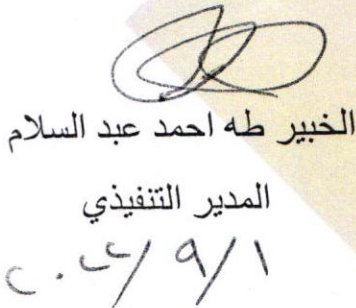 الخبير طه احمد عبد السلام
المدير التنفيذي
٢٠٢٢/٩/١